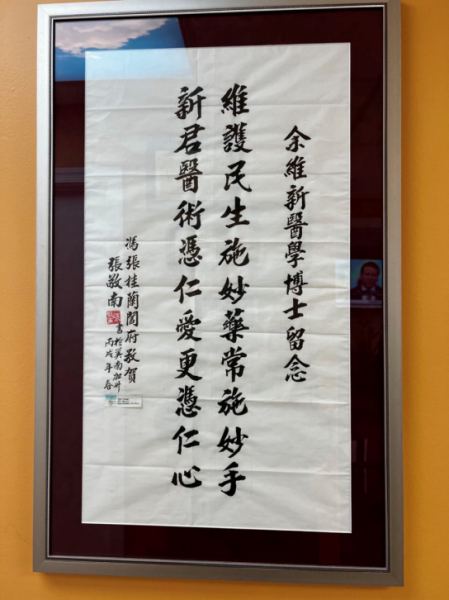 余維新醫學博士留念
維護民生施妙藥常施妙手
新君醫術憑仁愛更憑仁心
馮張桂蘭閤府敬賀
張敬南
書於美南加州
丙戌年春